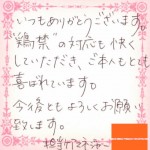 いつもありがとうございます。
"鶏禁"の対応も快く
していただき、ご本人ともども
喜ばれています。
今後ともよろしくお願い
致します。
担当ケアマネジャー